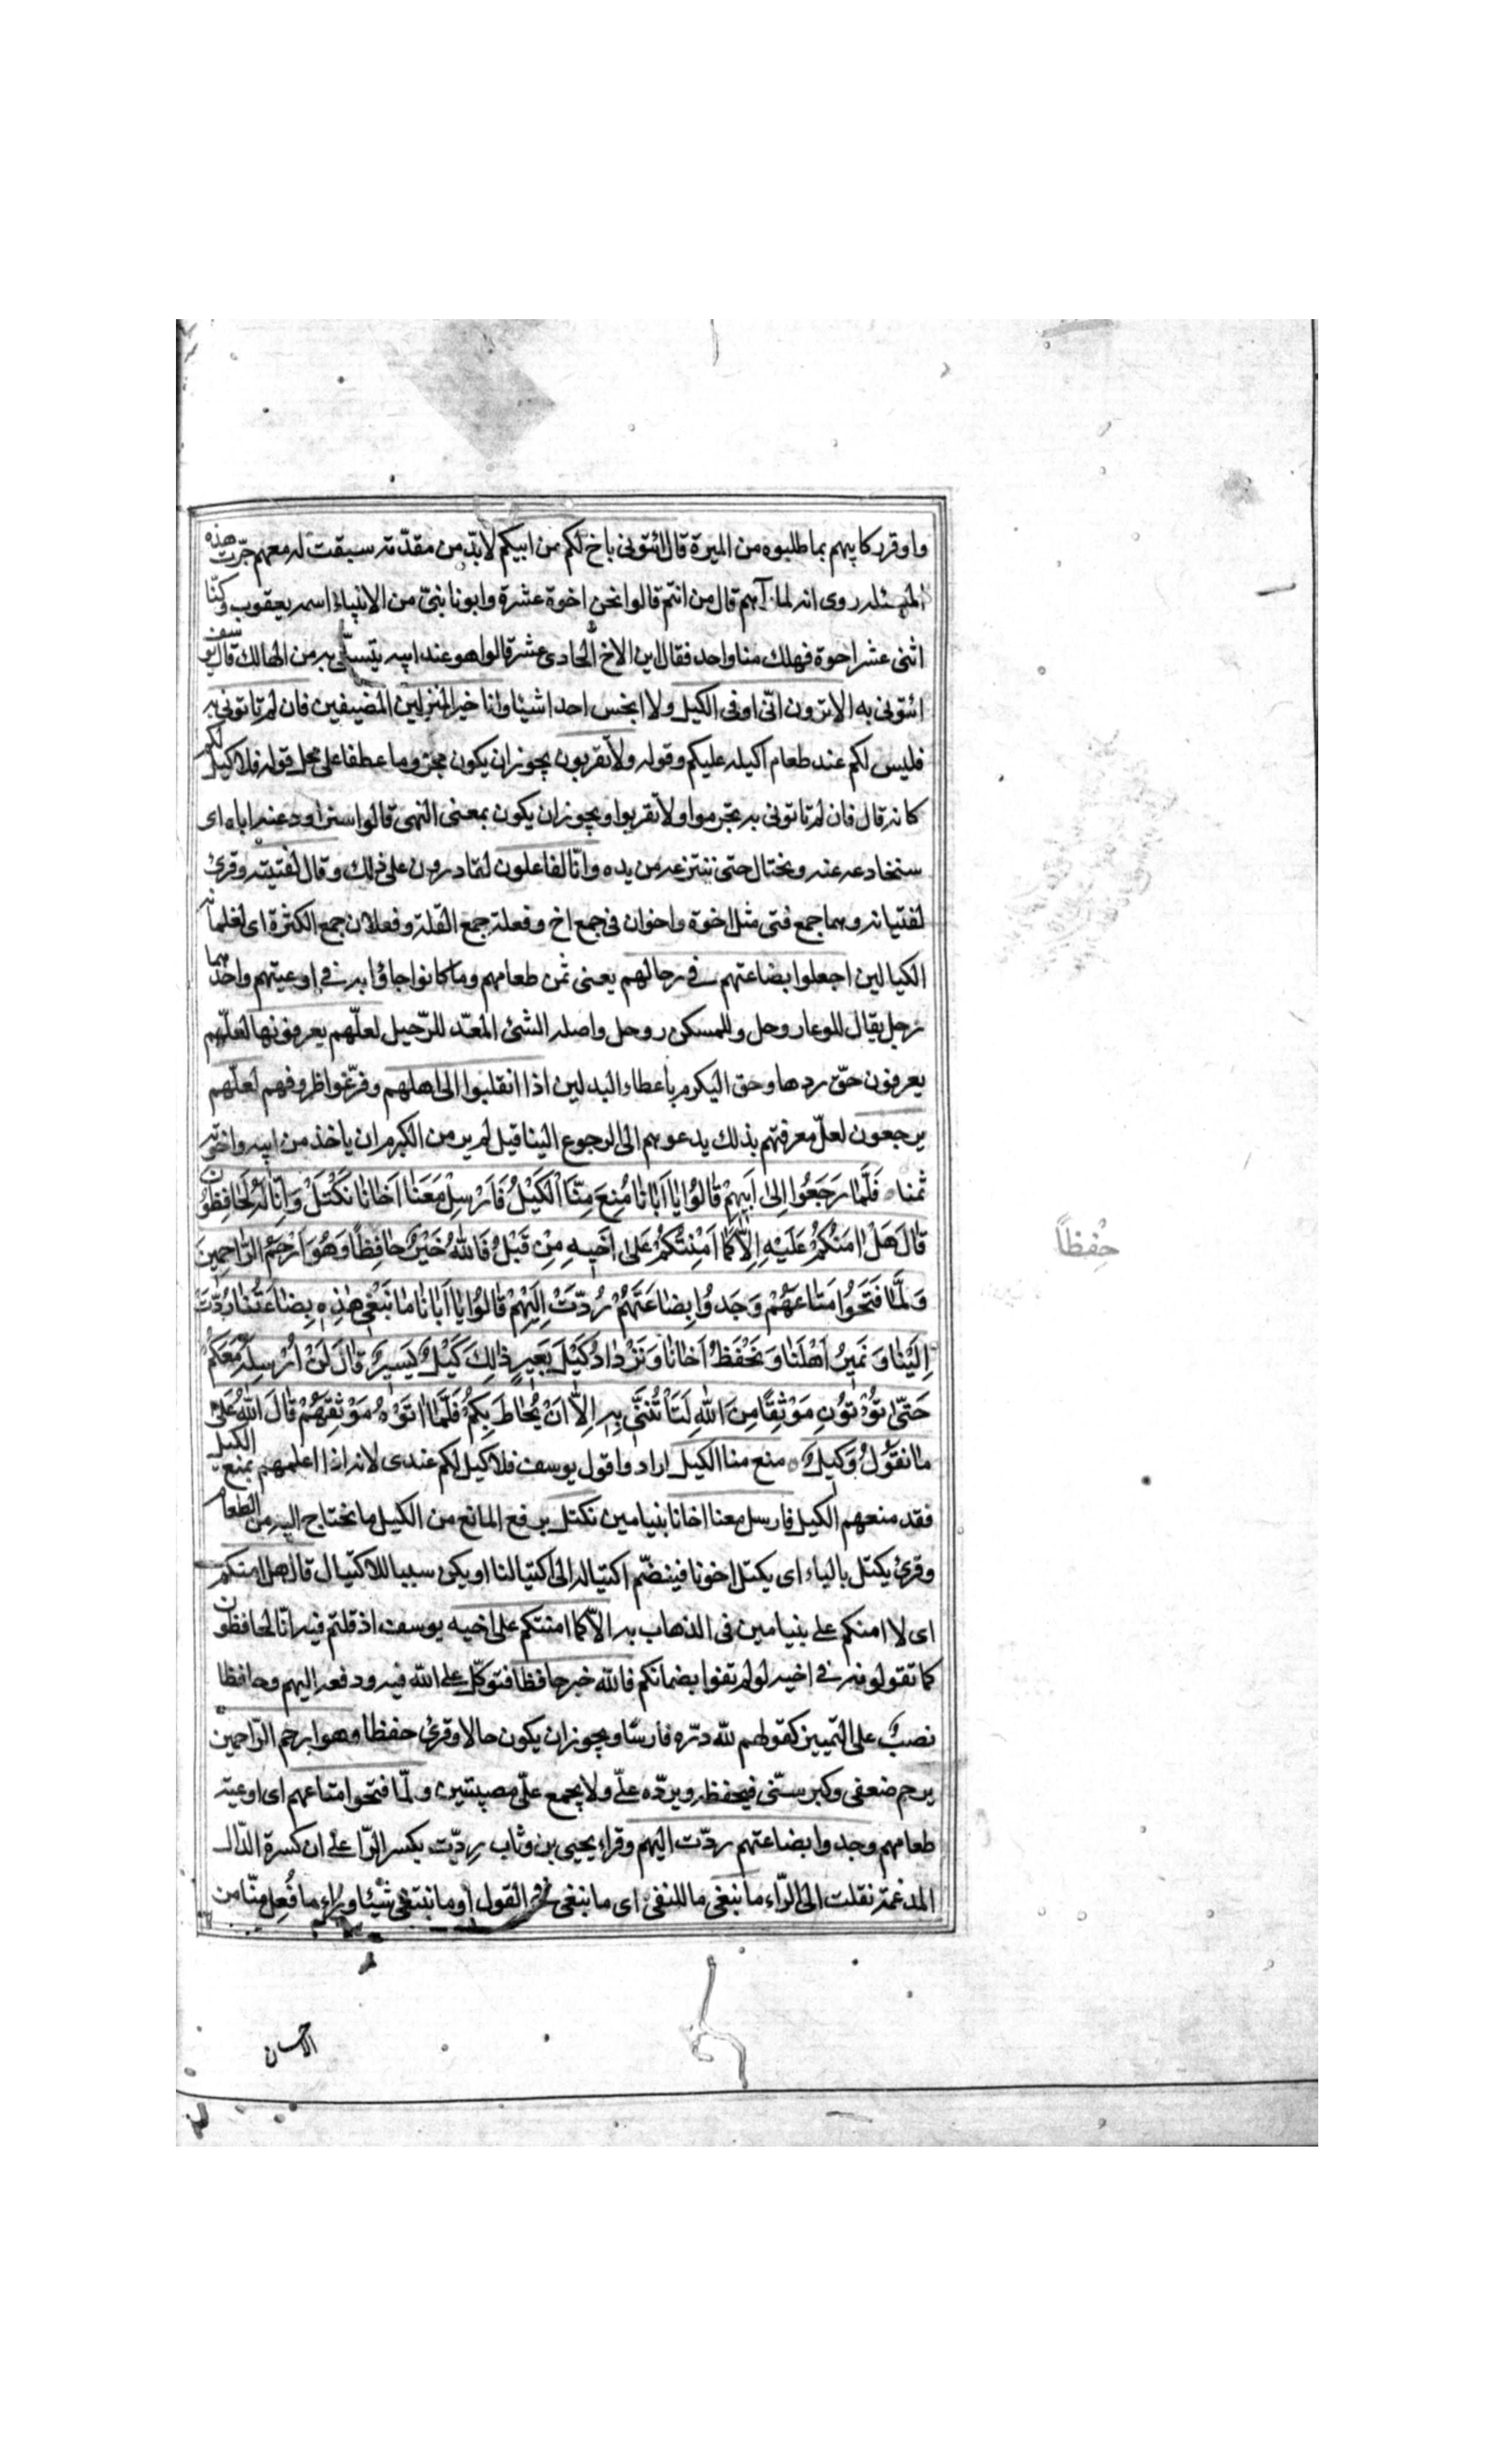 واوقر ركابهم بما طلبوه من الميرة قال ائتونى باخ لكم من ابيكم لابدّ من مقدّمة سبقت له معهم جرّت هذه
المسئله روى انه لما رآهم قال من انتم قالوا نحن اخوة عشرة وابونا نبىّ من الانبياء اسمه يعقوب وكنّا
اثنى عشر اخوة فهلك منا واحد فقال اين الاخ الحادى عشر قالوا هو عند ابيه يتسلّى به من الهالك قال يوسف
ائتونى به الا ترون انّى اوفى الكيل ولا ابخس احدا شيئا وانا خير المنزلين المضيفين فان لم تاتونى به
فليس لكم عند طعام اكيله عليكم وقوله ولا تقربون يجوز ان يكون مجزوما عطفا على محل قوله فلا كيل لكم
كانه قال فان لم تاتونى به تحرموا ولا تقربوا ويجوز ان يكون بمعنى النهى قالوا سنراود عنه اباه اى
سنخادعه عنه ونحتال حتى ننتزعه من يده وانّا لفاعلون لقادرون على ذلك وقال لفتيته وقرئ
لفتيانه وهما جمع فتى مثل اخوة واخوان فى جمع اخ وفعلة جمع القلة وفعلان جمع الكثرة اى لغلمانه
الكيالين اجعلوا بضاعتهم فى رحالهم يعنى ثمن طعامهم وما كانوا جاؤا به فى اوعيتهم واحدهما
رحل يقال للوعاء رحل وللمسكن رحل واصله الشئ المعدّ للرّحيل لعلّهم يعرفونها لعلّهم
يعرفون حقّ ردها وحق التكرم باعطاء البدلين اذا انقلبوا الى اهلهم وفرّغوا ظروفهم لعلّهم
يرجعون لعلّ معرفتهم بذلك يدعوهم الى الرجوع الينا قيل لم ير من الكرم ان ياخذ من ابيه واخوته
ثمنا فَلَمَّا رَجَعُوا اِلىٰ اَبيهِمْ قالُوا يا اَبانا مُنِعَ مِنَّا الْكَيْلُ فَاَرْسِلْ مَعَنا اَخانا نَكْتَلْ وَاِنّا لَهُ لَحافِظُونَ
قالَ هَلْ امَنُكُمْ عَلَيْهِ اِلاّ كَما اَمِنْتُكُمْ عَلىٰ اَخيهِ مِنْ قَبْلُ فَاللهُ خَيْرٌ حافِظاً وَهُوَ اَرْحَمُ الرّاحِمينَ
وَلَمَّا فَتَحُوا مَتاعَهُمْ وَجَدُوا بِضاعَتَهُمْ رُدَّتْ اِلَيْهِمْ قالُوا يا اَبانا ما نَبْغى هذِهِ بِضاعَتُنا رُدَّتْ
اِلَيْنا وَنَميرُ اَهْلَنا وَنَحْفَظُ اَخانا وَنَزْدادُ كَيْلَ بَعيرٍ ذٰلِكَ كَيْلٌ يَسيرٌ قالَ لَنْ اُرْسِلَهُ مَعَكُمْ
حَتّىٰ تُؤْتُونِ مَوْثِقًا مِنَ اللهِ لَتَأْتُنَّنى بِهِ اِلاّ اَنْ يُحاطَ بِكُمْ فَلَمَّا اتَوْهُ مَوْثِقَهُمْ قالَ اللهُ عَلىٰ
ما نَقُولُ وَكيلٌ منع منا الكيل ارادوا قول يوسف فلا كيل لكم عندى لانه اذا اعلمهم بمنع الكيل
فقد منعهم الكيل فارسل معنا اخانا بنيامين نكتل برفع المانع من الكيل ما نحتاج اليه من الطعام
وقرئ يكتل بالياء اى يكتل اخونا فينضمّ اكتياله الى اكتيالنا او يكن سببا للاكتيال قال هل امنكم
اى لا امنكم على بنيامين فى الذهاب به الاّ كما امنتكم على اخيه يوسف اذ قلتم فيه انّا له لحافظون
كما تقولونه فى اخيه لو لم تفوا بضمانكم فالله خير حافظا فتوكّل على الله فيه ودفعه اليهم وحافظا
نصبٌ على التمييز كقولهم لله درّه فارسًا ويجوز ان يكون حالا وقرئ حفظا وهو ارحم الرّاحمين
يرحم ضعفى وكبر سنّى فيحفظه ويردّه علىّ ولا يجمع علىّ مصيبتين ولمّا فتحوا متاعهم اى اوعية
طعامهم وجدوا بضاعتهم ردّت اليهم وقراء يحيى بن وثاب رِدّت بكسر الرّا على ان كسرة الدّال
المدغمة نقلت الى الرّاء ما نبغى ما للنفى اى ما نبغى فى القول او ما نبتغى شيئا وراء ما فُعِل منّا من
حِفْظاً
الاحسان